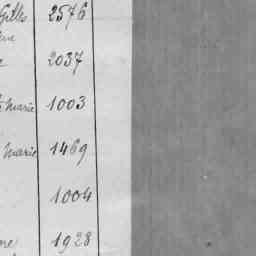 Gilles 2576
2037
Marie 1003
Marie 1469
1004
1928